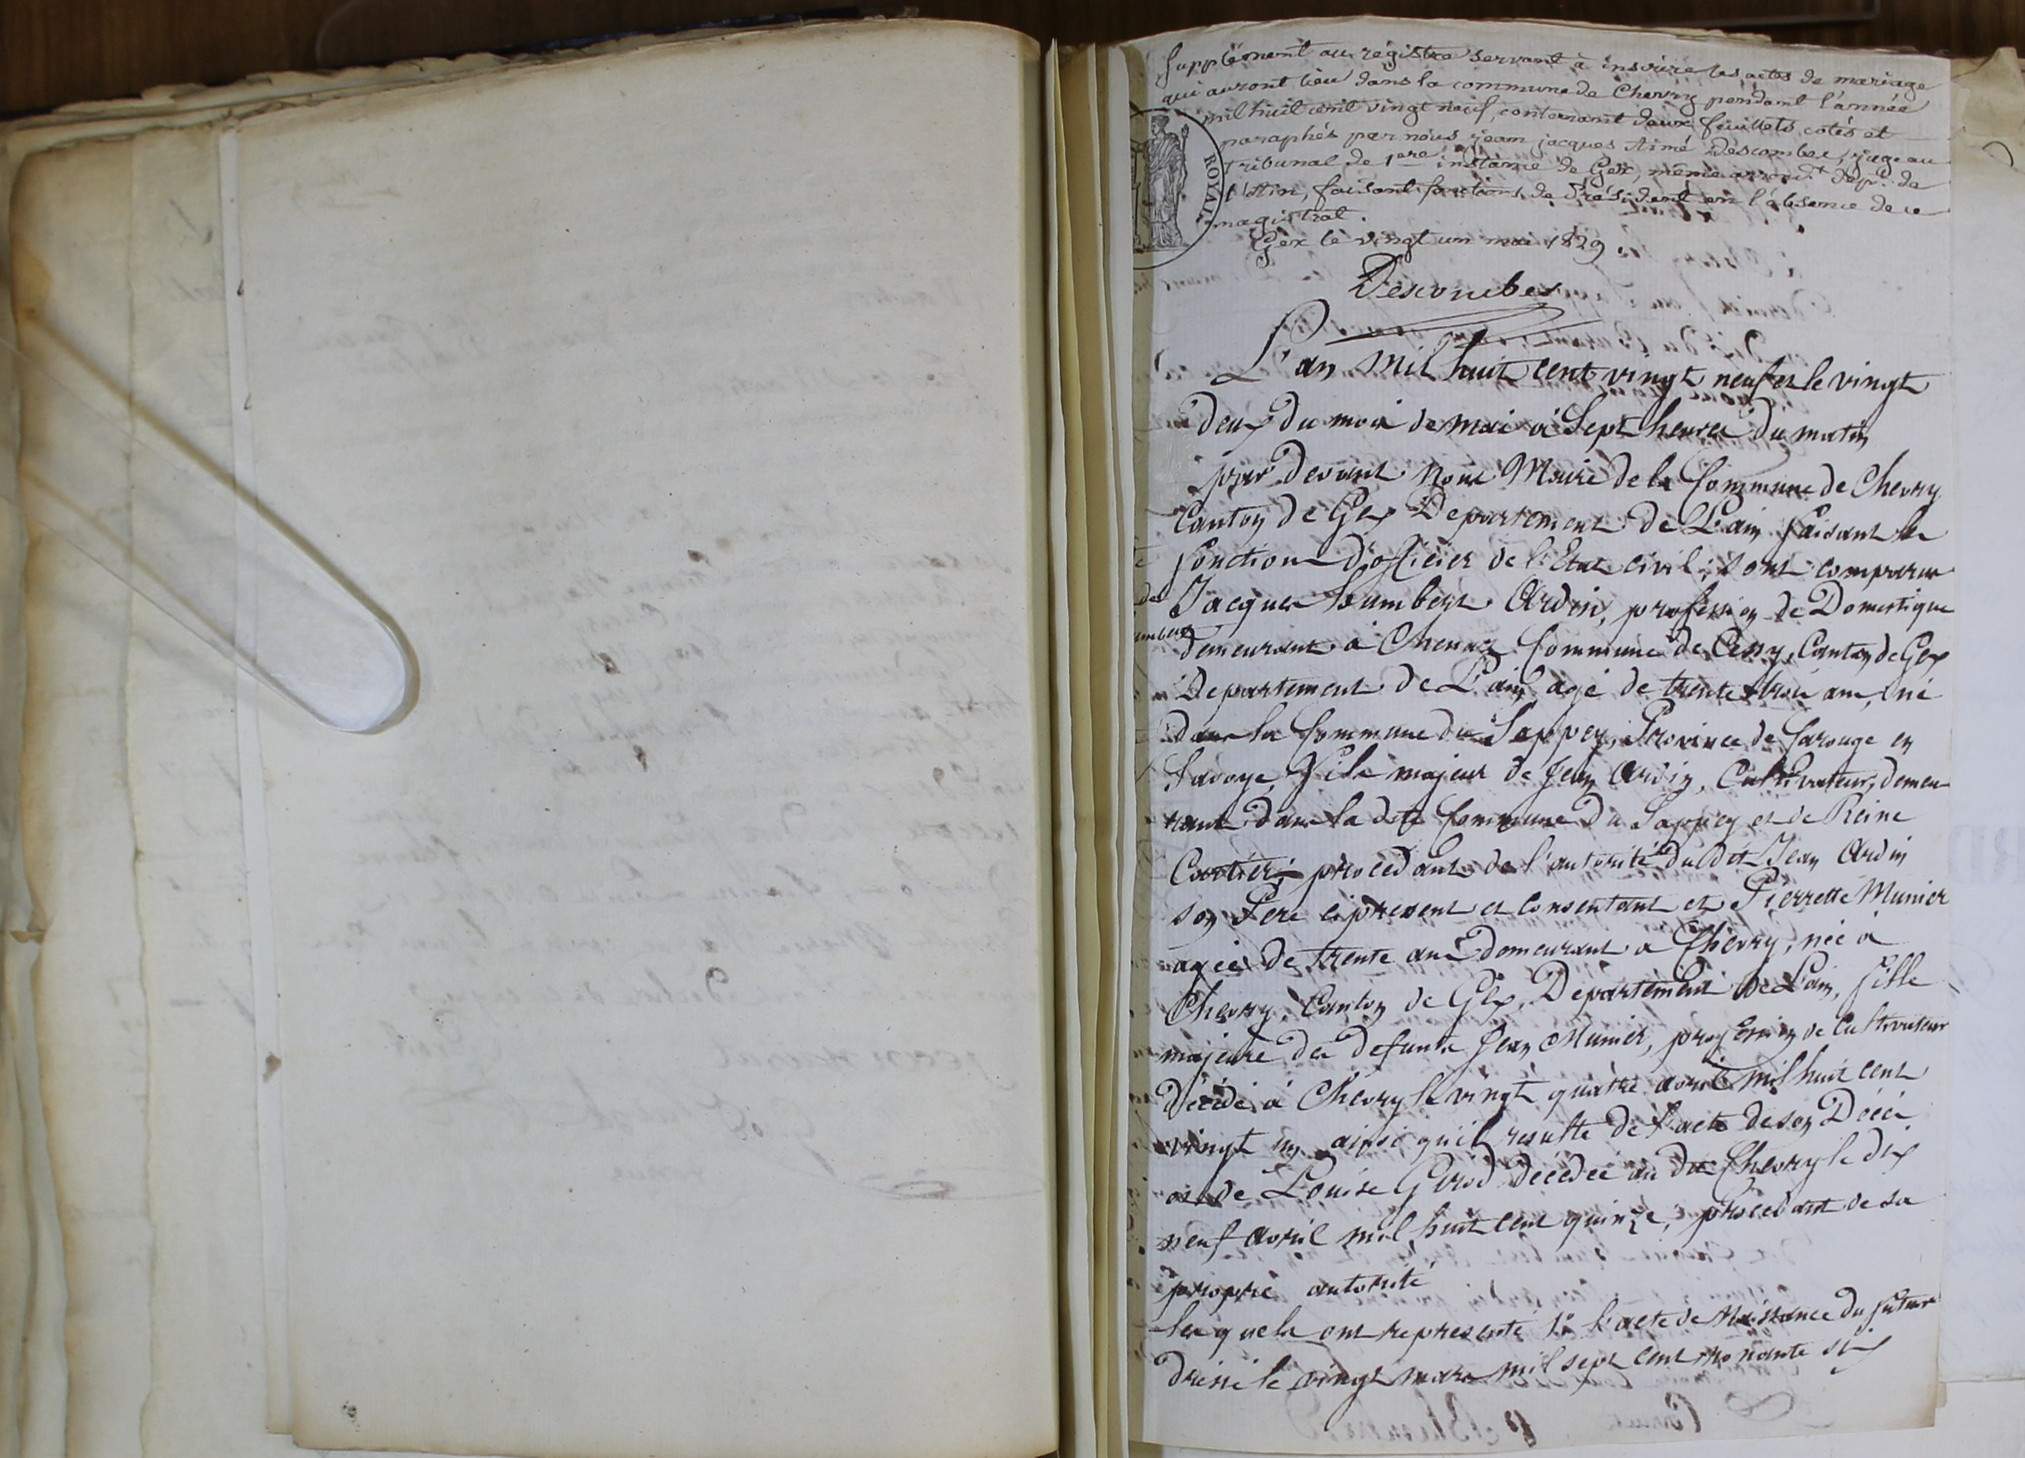 Supplément au régistre servant à inscrire les actes de mariage
qui auront lieu dans la commune de Chevry pendant l'année
mil huit cent vingt neuf, contenant deux feuillets, cotés et
paraphés par nous jean jacques Aimé Descombes, juge au
tribunal de 1ere instance de Gex, même arrond.t dép.t de
l'Ain, faisant fonctions de Président en l'absence de ce
magistrat.
Gex le vingt un mai 1829.
ROYAL
Descombes
L'an mil huit cent vingt neuf et le vingt
deux du mois de mai à Sept heures du matin
par devant Nous Maire de la Commune de Chevry
Canton de Gex Departement de L'ain faisant les
fonctions D'officier de l'Etat civil; sont comparus
Jacques humbert Ardin, profession de Domestique
demeurant à Commune de Cessy, Canton de Gex
Departement de L'ain, agé de trente trois ans, né
dans la Commune du Sappey, Province de Carouge en
Savoye, fils majeur de Jean Ardin, Cultivateur, demeu
rant dans la dite Commune du Sappey et de Reine
Cartier, procedant de l'autorité dudit Jean Ardin
son Pere ci present et consentant et Pierrette Munier
agée de trente ans demeurant a Chevry, née à
Chevry, Canton de Gex, Departement de L'ain, fille
majeure de defunts Jean Munier, profession de Cultivateur
décédé à Chevry le vingt quatre avril mil huit cent
vingt un ainsi qu'il resulte de l'acte de son Décé
et de Louise Girod decedée au dit Chevry le dix
neuf avril mil huit cent quinze, procedant de sa
propre autorité
lesquels ont representé 1º l'acte de Naissance du futur
dressé le vingt mars mil sept cent nonante six